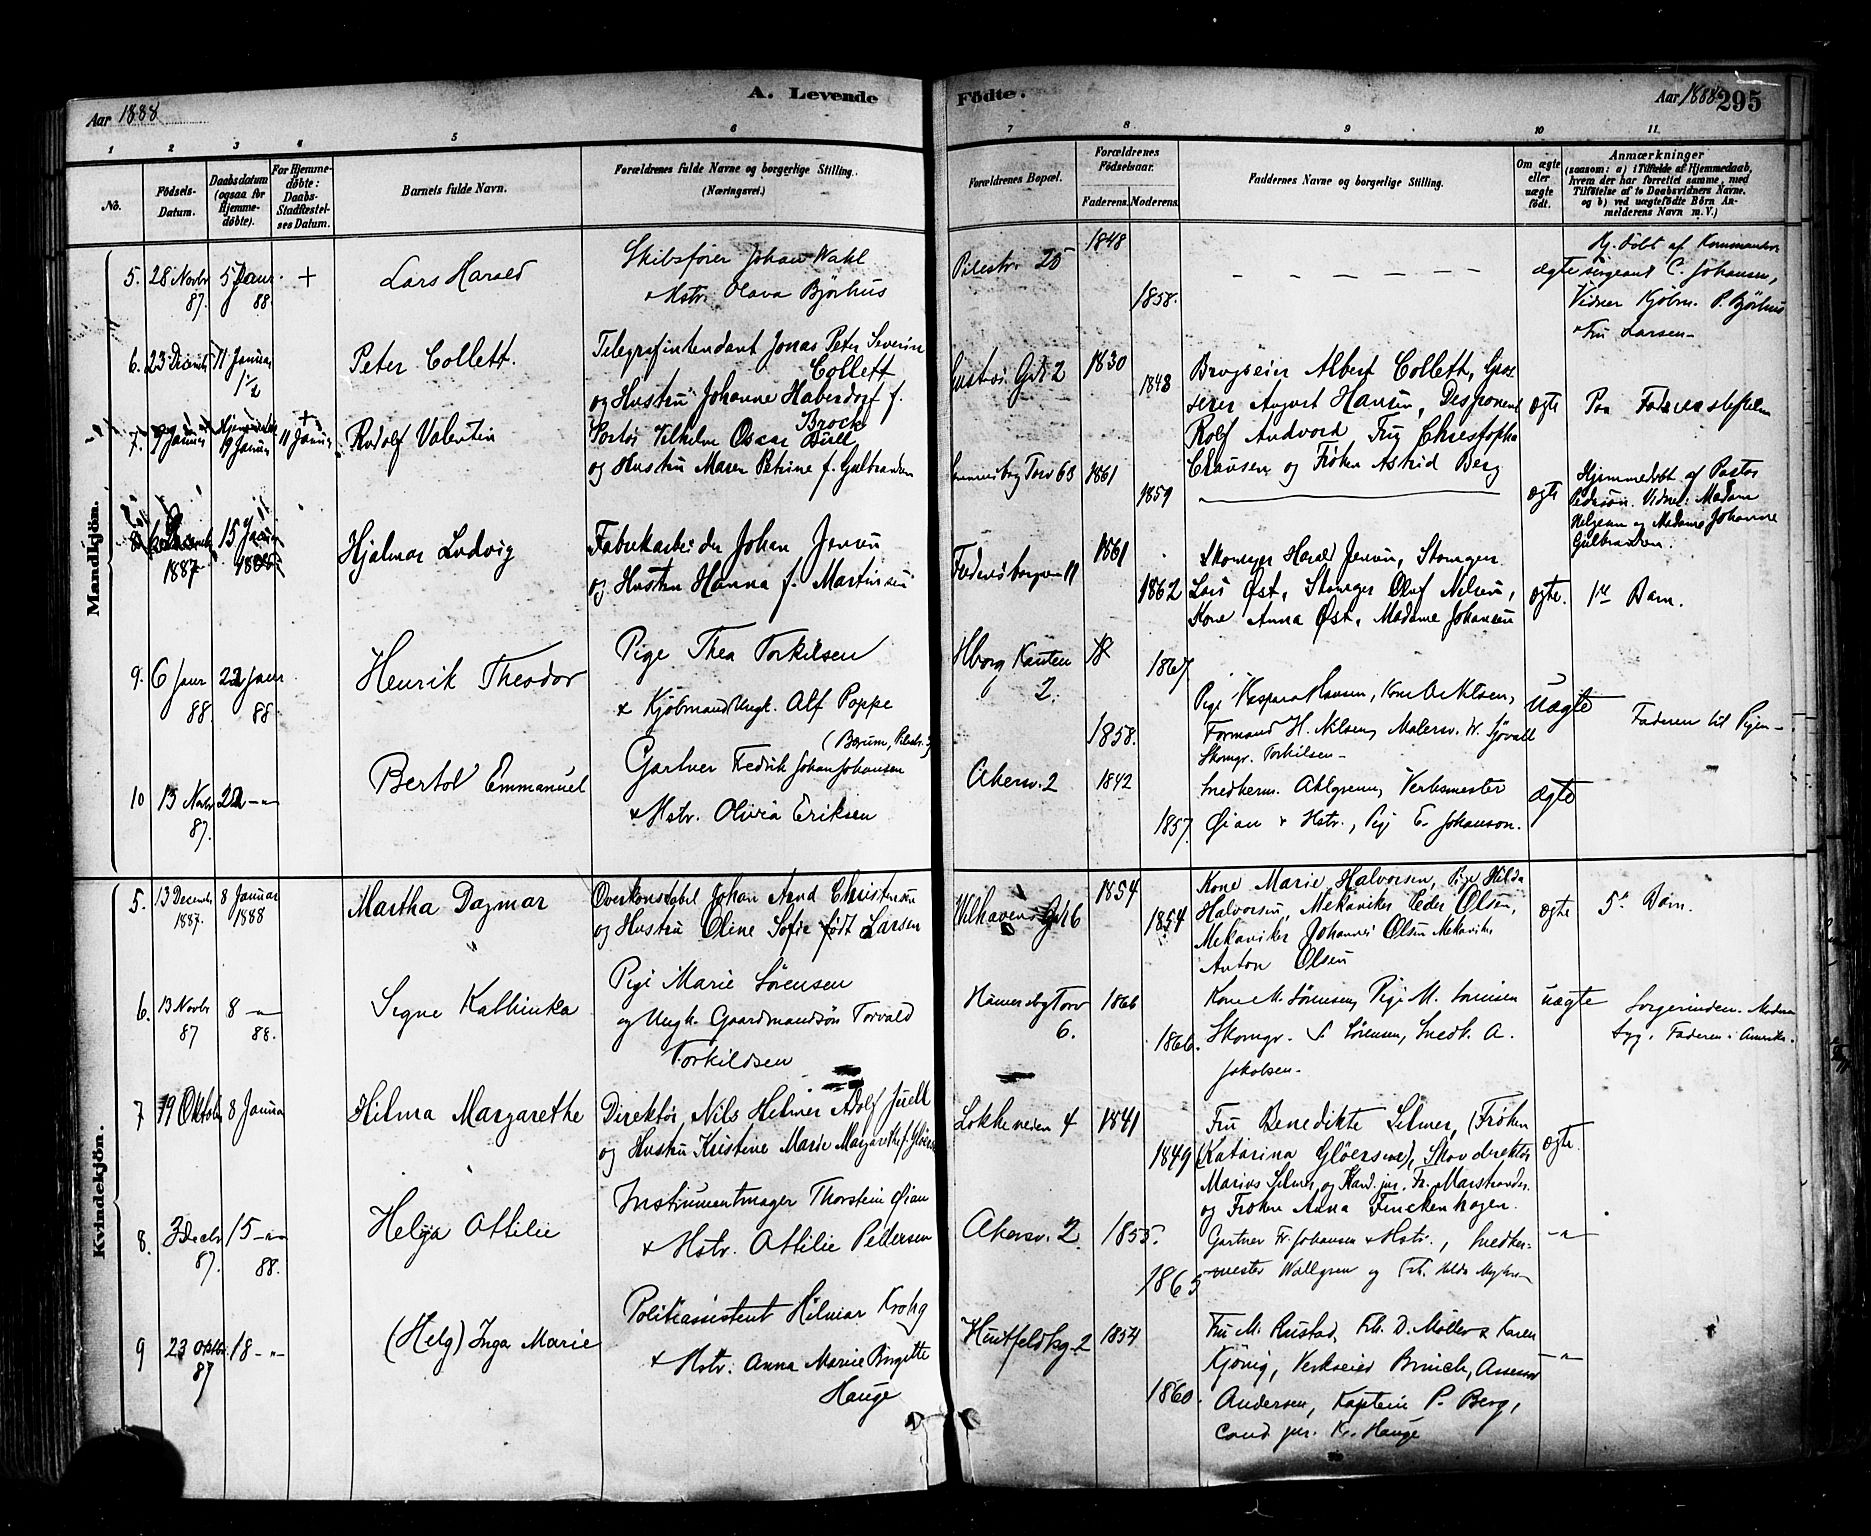 Aar 1888
A. Levende
Födte.
Aar 1888
295
1 2 3 4 5 6 7 8 9 10 11.
No.
Födsels-
Datum.
Daabsdatum
(ogsaa for
Hjemme-
døbte).
For Hjemme-
døbte:
Daabs-
Stadfæstel-
ses Datum.
Barnets fulde Navn.
Forældrenes fulde Navne og borgerlige Stilling.
(Næringsvei.)
Forældrenes Bopæl.
Forældrenes
Fødselsaar.
Faderens. Moderens.
Faddernes Navne og borgerlige Stilling.
Om ægte
eller
uægte
født.
Anmærkninger
(saasom: a) i Tilfælde af Hjemmedaab,
hvem der har forrettet samme, med
Tilföielse af to Daabsvidners Navne,
og b) ved uægtefödte Börn An-
melderens Navn m. V.)
Mandkjön.
5. 28 Novbr 87. 5 Januar 88 + Lars Harald
Skibsfører Johan Wahl
& Hstr. Olava Bjørhus
Pilestr. 25 1848 1858.
ægte
Hj. døbt af Kommandør
sergeant C. Johansen,
Vidner Kjøbm. P. Bjørhus
& Fru Larsen
6. 23 Decemb 11 Januar 1 1/2 Peter Collett.
Telegrafintendant Jonas Peter Severin
Collett
og Hustru Johanne f.
Brock
2 1830 1848
Albert Collett,
August Hansen, Disponent
Rolf Andvord Fru Christopha
Clausen og Frøken Astrid Berg
ægte
Paa
7. 9 Januar 19 Januar + 11 Januar Rudolf Valentin
Vilhelm Oscar Bull
og Hustru Maren Petrine f. Gulbrandsen
Torv 6 1861 1859
ægte
Hjemmedøbt af Pastor
Vidner: Madam
Helgesen og Madame Johanne
Gulbrandsen.
8 1887 15 Januar 1888 Hjalmar Ludvig
Fabrikarbeider Johan Jensen
og Hustru Hanna f. Martinsen
11 1861 1862
Skomager Harald Jensen, Skomager
Lars Øst, Skomager Oluf Nilsen,
Kone Anna Øst, Madame Johansen
ægte. 1ste Barn.
9. 6 Janr 88. 22 Janr 88. Henrik Theodor
Pige Thea Torkilsen
& Kjøbmand Ungk. Alf Poppe
(Bærum, Pilestr.
2. 1867. 1858.
Pige Kaspara Hansen, Kone
Formand H. Nilsen, Malersv. W. Sjøvall
Skomgr. Torkilsen
uægte
Faderen til Pigen
10 13 Novbr 87. 22 -"- Bertol Emmanuel
Gartner Fredrik Johan Johansen
& Hstr. Olivia Eriksen
Akersv. 2 1842 1857.
Snedkerm. Ahlgrenn, Verksmester
Øian & Hstr., Pige E. Johanson.
ægte
Kvindekjön.
5. 13 Decemb 1887. 8 Januar 1888 Martha Dagmar
Overkonstabel Johan Arnd Christensen
og Hustru Oline Sofie født Larsen
6 1854 1854
Kone Marie Halvorsen, Pige Hilda
Halvorsen, Mekaniker Peder Olsen,
Mekaniker Johannes Olsen Mekaniker
Anton Olsen
ægte 5te Barn.
6. 13 Novbr 87 8 -"- 88. Signe Kathinka
Pige Marie Sørensen
og Ungk. Gaardmandssøn Torvald
Torkildsen
Hammersbg Torv
6. 1866 1866.
Kone M. Sørensen, Pige M. Sørensen
Skomgr. S Sørensen, Snedk. A.
Jakobsen
uægte
Moderen
syg. Faderen i Amerika.
7 19 Oktober 8 Januar Hilma Margarethe
Direktør Nils Helmer Adolf Juell
og Hustru Kristine Marie Margarethe f. Gløersen
Løkkeveien 4 1841 1849
Fru Benedikte Selmer, (Frøken
(Katarina Gløersen), Skovdirektør
Marius Selmer og Kand. jur. Fr. Marstrander
og Frøken Anna Finckenhagen.
ægte
8. 3 Decbr 87. 15 -"- 88. Helga Ottilie
Instrumentmager Thorstein Øian
& Hstr. Ottilie Pettersen
Akersv. 2 1855. 1865
Gartner Fr. Johansen & Hstr., Snedker-
mester Wallgren og Frk. Hilda
-"-
9 23 Oktbr 87 18 -"- (Helg) Inga Marie
Politiassistent Hilmar Krohg
& Hstr. Anna Marie Birgitte
Hauge
Huitfeldtsg. 2 1854 1860.
Fru M. Rustad, Frk. D. Møller & Karen
Kjønig, Verkseier Brinch, Assessor
Andersen, Kaptein P. Berg,
Cand. jur. Kr. Hauge
-"-